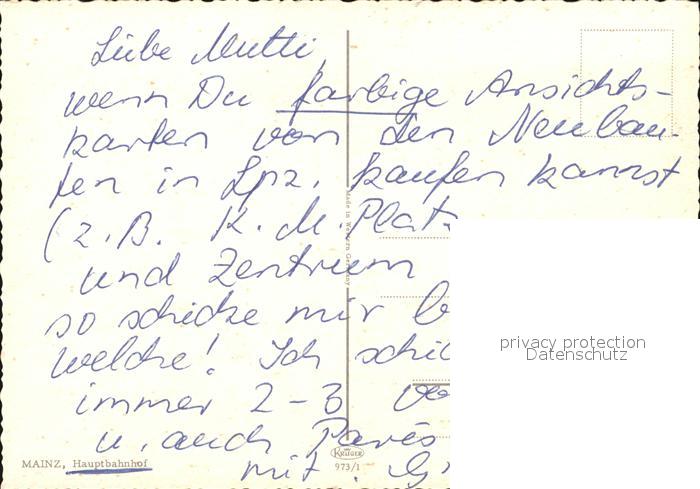 Liebe Mutti,
wenn Du farbige Ansichts-
karten von den Neubau-
ten in Lpz. kaufen kannst
(z.B. K. M. Plat
und Zentrum
so schicke mir b
welche! Ich schic
immer 2-3 vo
u. auch Paris
mit. G
Made in Western Germany
privacy protection
Datenschutz
MAINZ, Hauptbahnhof
KRÜGER
973/1